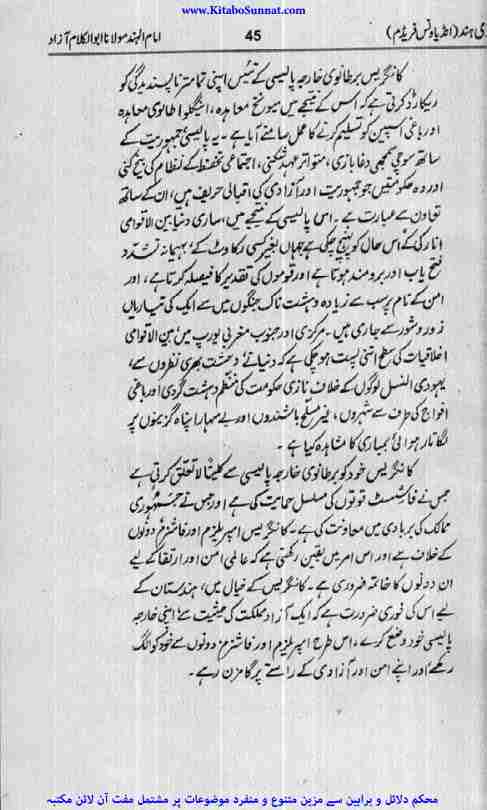 www.KitaboSunnat.com
امام الہند مولانا ابوالکلام آزاد
45
ی ہند (انڈیا ونس فریڈم)
کانگریس برطانوی خارجہ پالیسی کے تئیں اپنی تمام تر ناپسندیدگی کو
ریکارڈ کرتی ہے کہ اس کے نتیجے میں میونخ معاہدہ، اینگلو اطالوی معاہدہ
اور باغی اسپین کو تسلیم کرنے کا عمل سامنے آیا ہے۔ یہ پالیسی جمہوریت کے
ساتھ سوچی سمجھی دغا بازی، متواتر عہد شکنی، اجتماعی تحفظ کے نظام کی بیخ کنی
اور وہ حکومتیں جو جمہوریت اور آزادی کی اقبالی حریف ہیں، ان کے ساتھ
تعاون سے عبارت ہے۔ اس پالیسی کے نتیجے میں، ساری دنیا بین الاقوامی
انارکی کے اس حال کو پہنچ چکی ہے جہاں بغیر کسی رکاوٹ کے بہیمانہ تشدّد
فتح یاب اور برومند ہوتا ہے اور قوموں کی تقدیر کا فیصلہ کرتا ہے، اور
امن کے نام پر سب سے زیادہ دہشت ناک جنگوں میں سے ایک کی تیاریاں
زور و شور سے جاری ہیں۔ مرکزی اور جنوب مغربی یورپ میں بین الاقوامی
اخلاقیات کی سطح اتنی پست ہو چکی ہے کہ دنیا نے دہشت بھری نظروں سے،
یہودی النسل لوگوں کے خلاف نازی حکومت کی منظّم دہشت گردی اور باغی
افواج کی طرف سے شہروں، غیر مسلّح باشندوں اور بے سہارا پناہ گزینوں پر
لگاتار ہوائی بمباری کا مشاہدہ کیا ہے۔
کانگریس خود کو برطانوی خارجہ پالیسی سے کلیتاً لاتعلق کرتی ہے
جس نے فاشسٹ قوتوں کی مسلسل حمایت کی ہے اور جس نے جمہوری
ممالک کی بربادی میں معاونت کی ہے۔ کانگریس امپیریلزم اور فاشزم دونوں
کے خلاف ہے اور اس امر میں یقین رکھتی ہے کہ عالمی امن اور ارتقا کے لیے
ان دونوں کا خاتمہ ضروری ہے۔ کانگریس کے خیال میں، ہندستان کے
لیے اس کی فوری ضرورت ہے کہ ایک آزاد مملکت کی حیثیت سے اپنی خارجہ
پالیسی خود وضع کرے، اس طرح امپیریلزم اور فاشزم دونوں سے خود کو الگ
رکھے اور اپنے امن اور آزادی کے راستے پر گامزن رہے۔
محکم دلائل و براہین سے مزین متنوع و منفرد موضوعات پر مشتمل مفت آن لائن مکتبہ